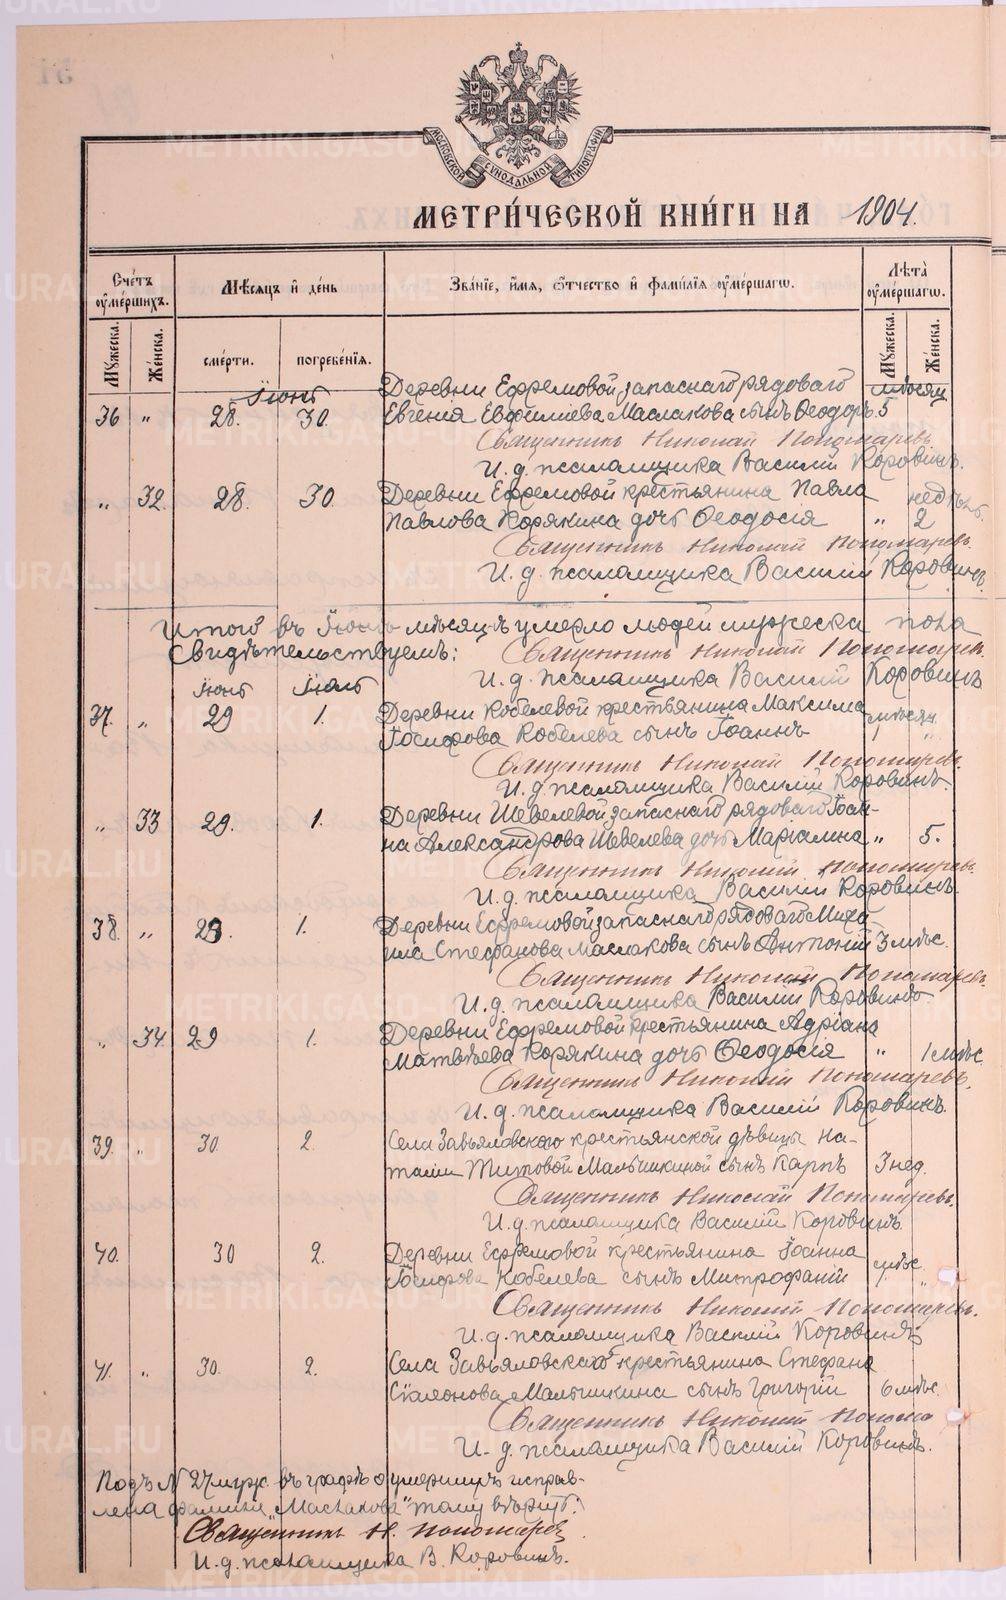 МОСКОВСКОЙ СУНОДАЛЬНОЙ ТИПОГРАФІИ
МЕТРИ́ЧЕСКОЙ КНИ́ГИ НА 1904.
Сче́тъ ᲂу҆ме́ршихъ.
Мѣ́сяцъ и҆ де́нь
Зва́нїе, и҆́мѧ, ѻ҆́тчество и҆ фамѝлїѧ ᲂу҆ме́ршагѡ.
Лѣта̀ ᲂу҆ме́ршагѡ.
Мꙋ́жеска.
Же́нска.
сме́рти.
погребе́нїѧ.
Мꙋ́жеска.
Же́нска.
Іюнь Деревни Ефремовой запаснаго рядоваго мѣсяц
36 " 28. 30. Евгенія Евфиміева Маслакова сынъ Ѳеодоръ 5
Священникъ Николай Пономаревъ
И. д. псаломщика Василій Коровинъ.
" 32. 28. 30 Деревни Ефремовой крестьянина Павла недѣль
Павлова Корякина дочь Ѳеодосія " 2
Священникъ Николай Пономаревъ.
И. д. псаломщика Василій Коровинъ.
Итого въ Іюнь мѣсяцъ умерло людей мужеска пола
Свидѣтельствуемъ: Священникъ Николай Пономарев.
И. д. псаломщика Василій Коровинъ
Іюнь Іюль
37. " 29 1. Деревни Кобелевой крестьянина Максима мѣсяц.
Іосифова Кобелева сынъ Іоаннъ 1 "
Священникъ Николай Пономаревъ.
И. д. псаломщика Василій Коровинъ.
" 33 29. 1. Деревни Шевелевой запаснаго рядоваго Іоан-
на Александрова Шевелева дочь Маріамна " 5.
Священникъ Николай Пономаревъ.
И. д. псаломщика Василій Коровинъ.
38. " 29. 1. Деревни Ефремовой запаснаго рядоваго Миха-
ила Стефанова Маслакова сынъ Антоній 3 мѣс.
Священникъ Николай Пономаревъ.
И. д. псаломщика Василій Коровинъ.
" 34 29 1. Деревни Ефремовой крестьянина Адріана
Матвѣева Корякина дочь Ѳеодосія " 1 мѣс.
Священникъ Николай Пономаревъ.
И. д. псаломщика Василій Коровинъ.
39. " 30. 2. Села Завьяловскаго крестьянской дѣвицы На-
таліи Титовой Малышкиной сынъ Карпъ 3 нед.
Священникъ Николай Пономаревъ.
И. д. псаломщика Василій Коровинъ
40. 30 2. Деревни Ефремовой крестьянина Іоанна
Іосифова Кобелева сынъ Митрофаній мѣс. "
Священникъ Николай Пономаревъ.
И. д. псаломщика Василій Коровинъ
41. " 30. 2. Села Завьяловскаго крестьянина Стефана
Симеонова Малышкина сынъ Григорій 6 мѣс.
Священникъ Николай Понома
И. д. псаломщика Василій Коровинъ.
Подъ № 27 муж. въ графѣ о умершихъ исправ-
лена фамилія „Маслакова" тому вѣрит:
Священникъ Н. Пономарев
И. д. псаломщика В. Коровинъ.
METRIKI.GASO-URAL.RU